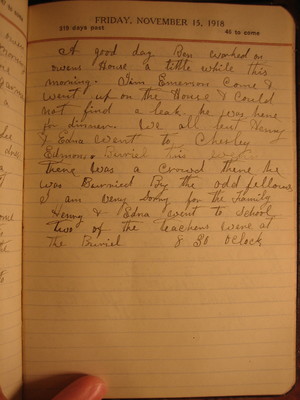 FRIDAY, NOVEMBER 15, 1918
319 days past
46 to come
A good day Ben worked on
owens House a little while this
morning. Jim Emerson Come &
went up on the House & Could
not find a leak he was here
for dinner. We all but Henry
& Edna went to Charley
Edmons. Buriel this
there was a crowd there he
was Burried By the odd fellows
I am very sorry for the family
Henry & Edna went to School
two of the teachers were at
the Buriel 8 30 OClock